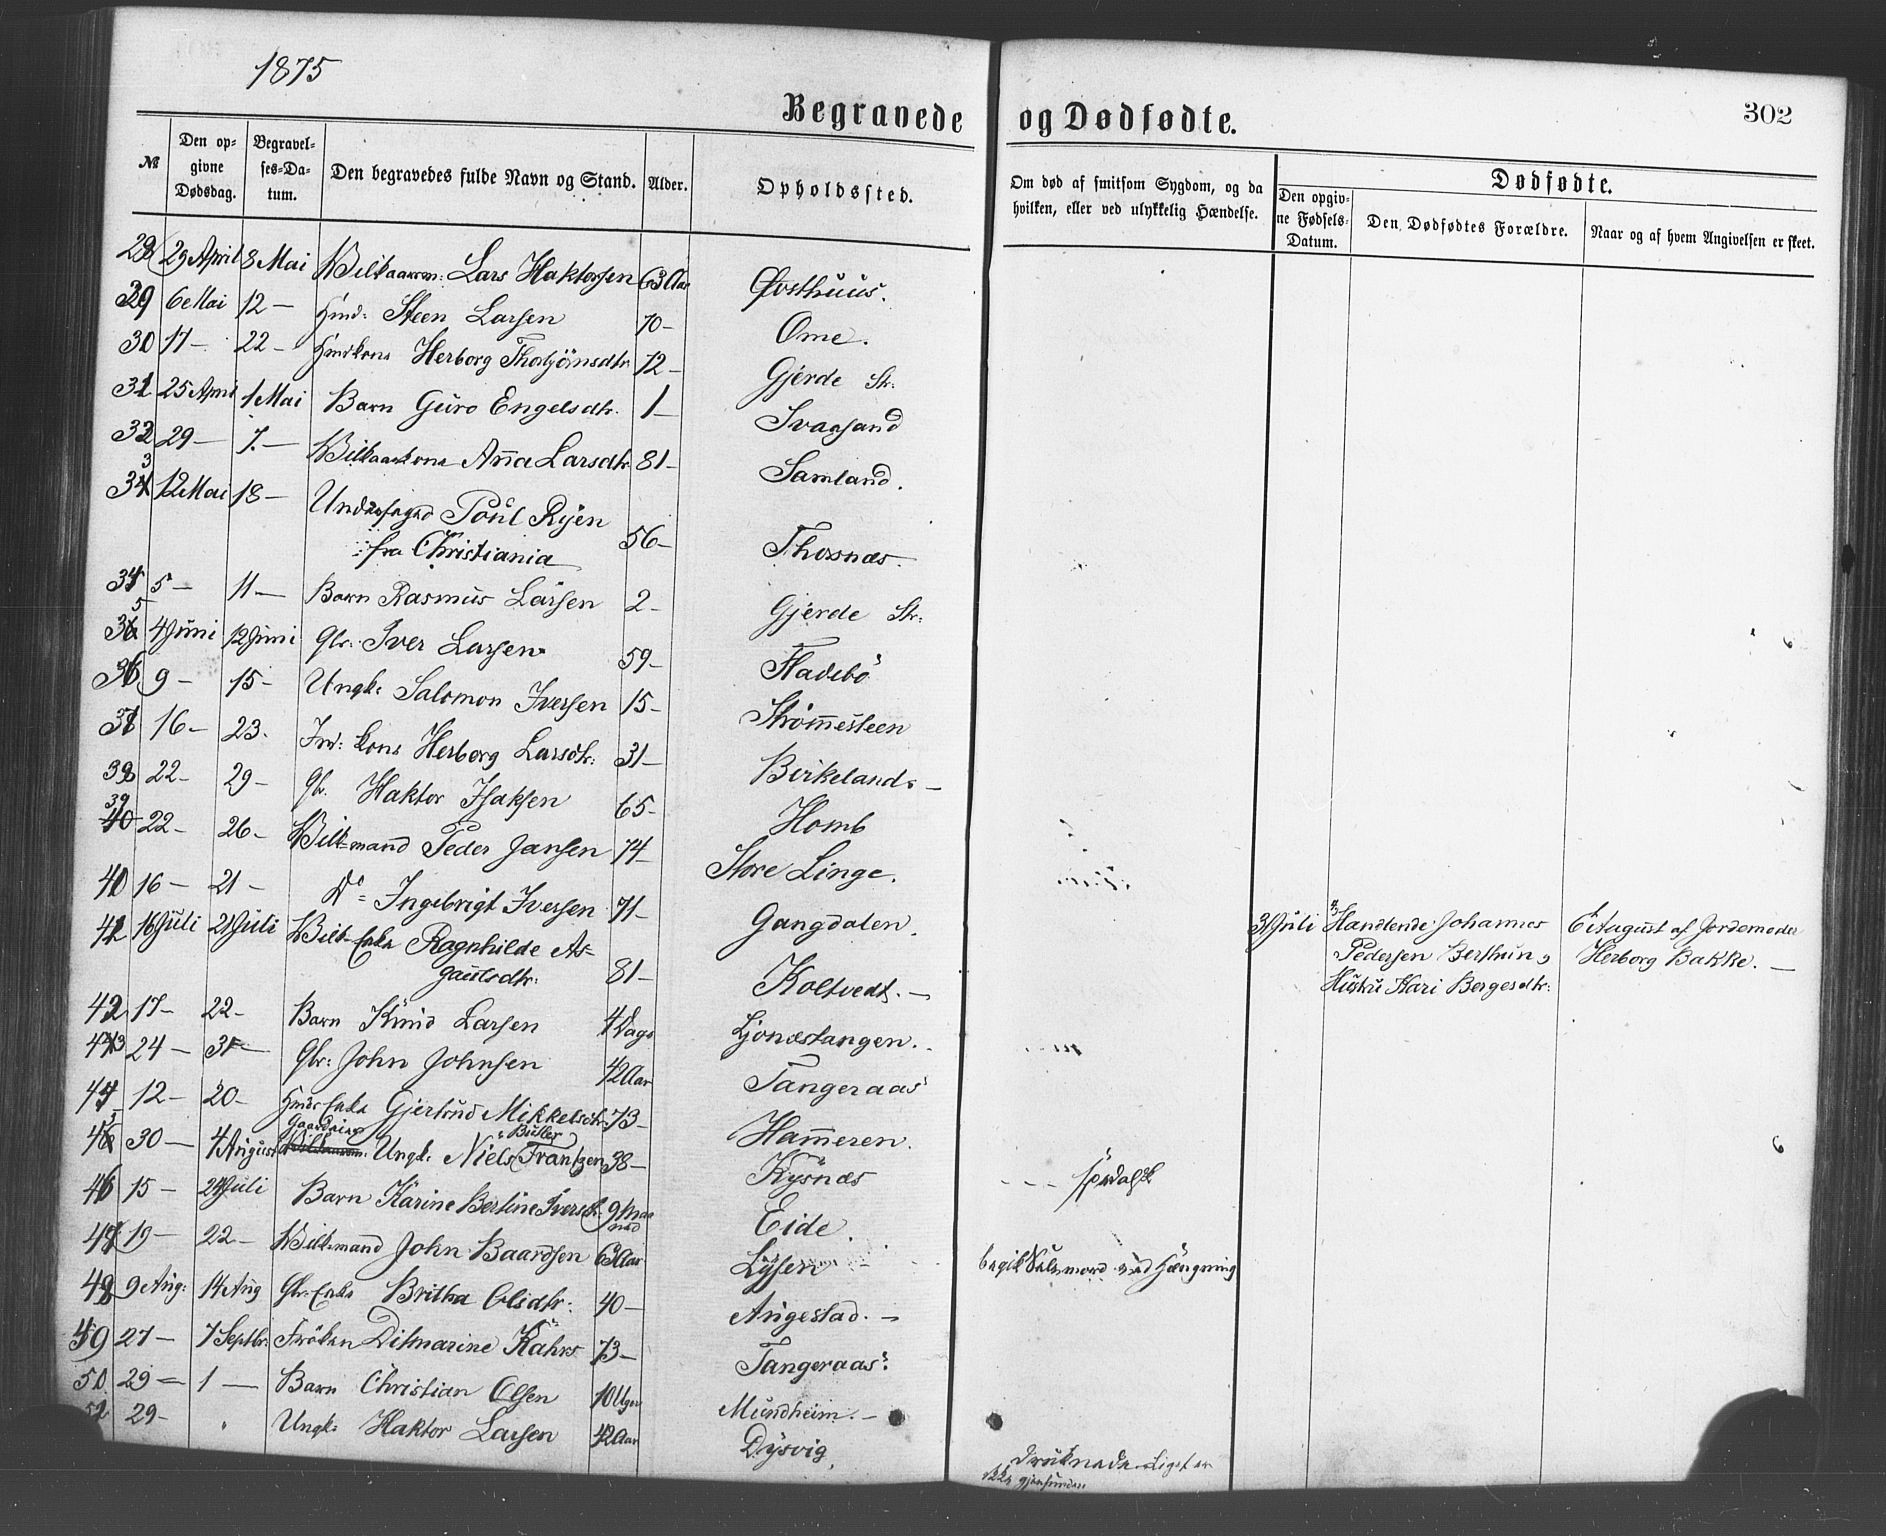 1875
Begravede og Dødfødte.
302
№
Den opgivne Dødsdag.
Begravelses-Datum.
Den begravedes fulde Navn og Stand.
Alder.
Opholdssted.
Om død af smitsom Sygdom, og da hvilken, eller ved ulykkelig Hændelse.
Dødfødte.
Den opgivne Fødsels-Datum.
Den Dødfødtes Forældre.
Naar og af hvem Angivelsen er skeet.
28 29 April 8 Mai Lars Haktorsen 63 Aar Østhuus.
29 6 Mai 12 — Steen Larsen 70 — Ome.
30 17 — 22 — Herborg Thorbjörnsdtr 72 — Gjerde Str:
31 25 April 1 Mai Barn Guro Engelsdtr. 1 — Svaasand
32 29 — 7. — Anna Larsdtr 81 — Samland.
3
34 12 Mai 18 — Poul Ryen
fra Christiania 56 — Thorsnæs.
34 5 — 11 — Barn Rasmus Larsen 2 — Gjerde Str:
5
36 4 Juni 12 Juni Gbr: Iver Larsen 59 — Fladebö
36 9 — 15 — Ungk: Salomon Iversen 15 — Strömmesteen
37 16 — 23. Ind: kone Herborg Larsdtr: 31 — Birkeland. —
38 22 — 29 — Gbr. Haktor Isaksen 65 — Homb
39
40 22 — 26 — Vilk=mand Peder Jansen 74 — Store Linge.
40 16 — 21 — Do Ingebrigt Iversen 71 — Gangdalen.
41 16 Juli 21 Juli Vilk-Enke Ragnhilde As=
gautsdtr. 81 — Koltvedt. —
31 Juli Handlende Johannes 6 August af Jordemoder
Pedersen Berthun, Herborg Bakke. —
Hustru Kari Bergesdtr:
42 17 — 22 — Barn Knud Larsen 4 Dage Ljonestangen.
43 24 — 31 — Gbr: John Johnsen 42 Aar Tangeraas
44 12 — 20 — Enke Gjertrud Mikkelsdtr 73 — Hammeren.
5
46 30 — 4 August Ungk: Niels Frantzen 38 — Kysnæs
46 15 — 24 Juli Barn Karine Bertine Iversd: 9 Maaned Eide.
47 19 — 22 — Vilk=mand John Baardsen 63 Aar Lysen begik Selvmord ved Hængning
48 9 Aug: 14 Aug Gbr=Enke Britha Olsdtr: 40 — Augestad. —
49 27 — 7 Septbr. Fröken Ditmarine Kahrs 73 — Tangeraas.
50 29 — 1 — Barn Christian Olsen 10 Uger Mundheim. —
29 — Ungk: Haktor Larsen 42 Aar Dysvig.
Druknede Liget er
ikke gjenfunden